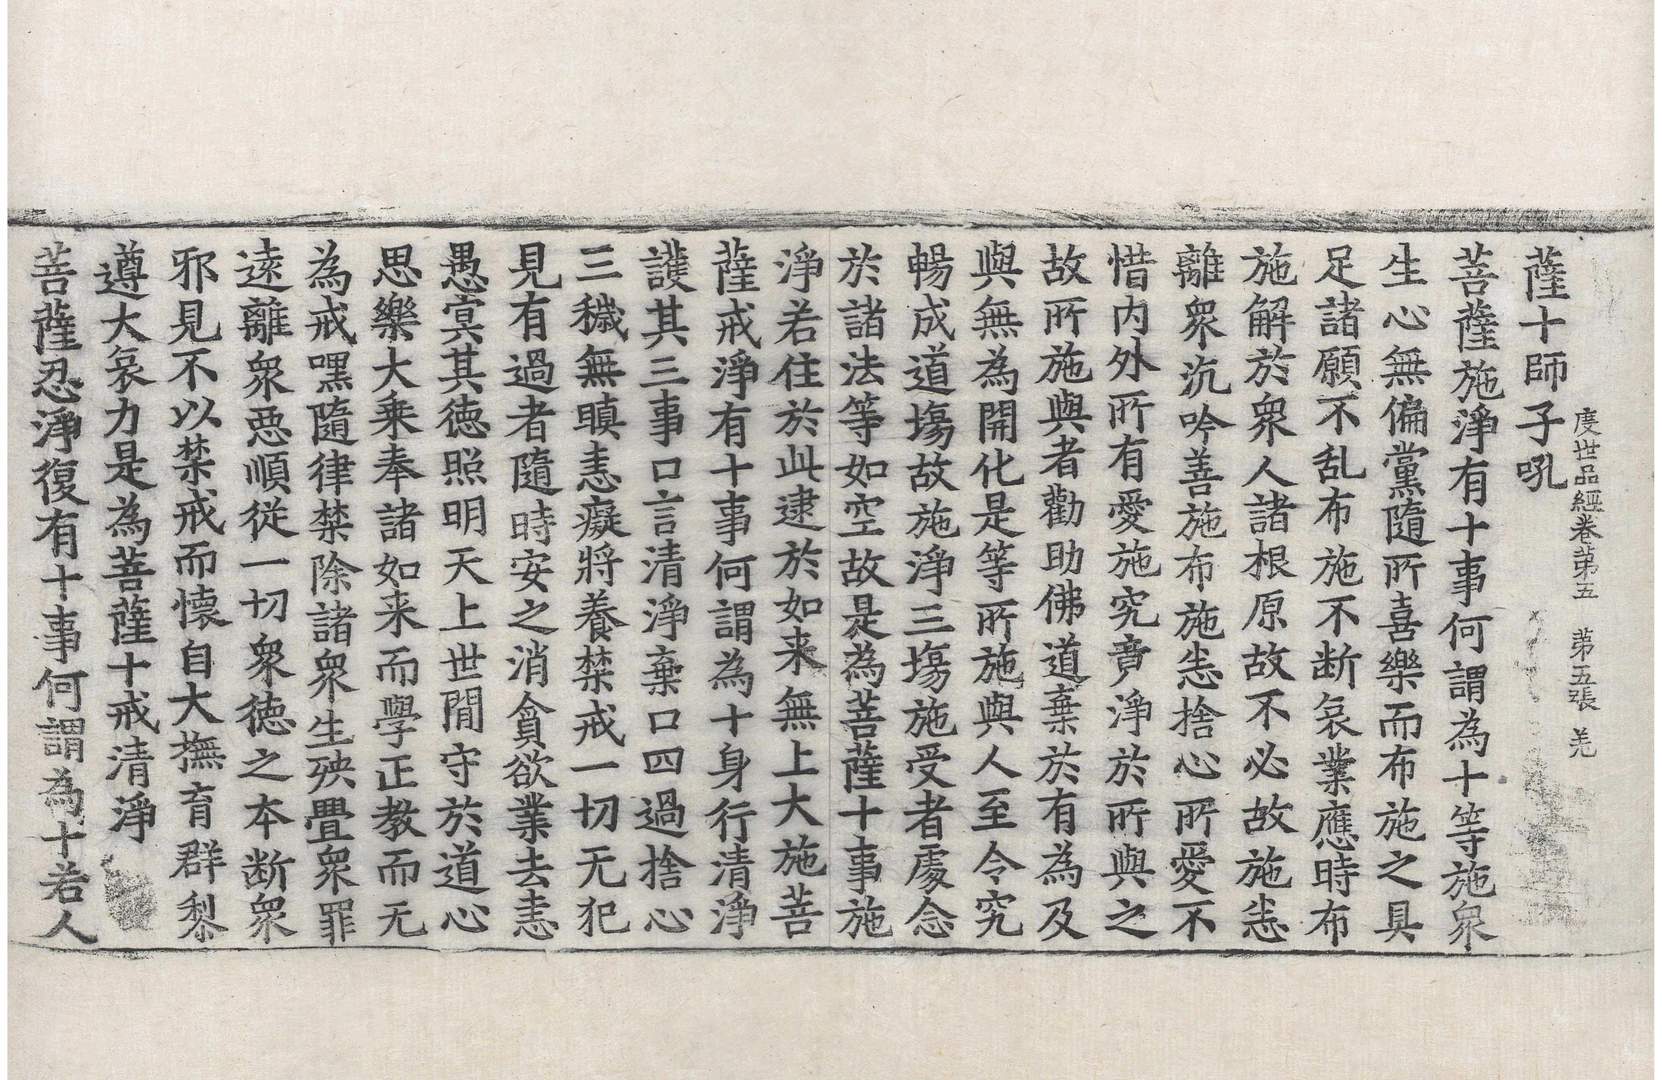 度世品經卷第五　第五張　羌
薩十師子吼
菩薩施淨有十事何謂為十等施衆
生心無偏黨隨所喜樂而布施之具
足諸願不乱布施不断哀業應時布
施解於衆人諸根原故不必故施恚
離衆沉吟善施布施恚捨心所愛不
惜内外所有愛施究竟淨於所與之
故所施與者勸助佛道棄於有為及
與無為開化是等所施與人至令究
暢成道塲故施淨三塲施受者處念
於諸法等如空故是為菩薩十事施
淨若住於此逮於如来無上大施菩
薩戒淨有十事何謂為十身行清淨
護其三事口言清淨棄口四過捨心
三穢無瞋恚癡將養禁戒一切无犯
見有過者隨時安之消貪欲業去恚
愚㝠其德照明天上世間守於道心
思樂大乘奉諸如来而學正教而无
為戒嘿隨律禁除諸衆生殃疊衆罪
逺離衆悪順從一切衆徳之本断衆
邪見不以禁戒而懷自大撫育群𥠖
遵大哀力是為菩薩十戒清淨
菩薩忍淨復有十事何謂為十若人